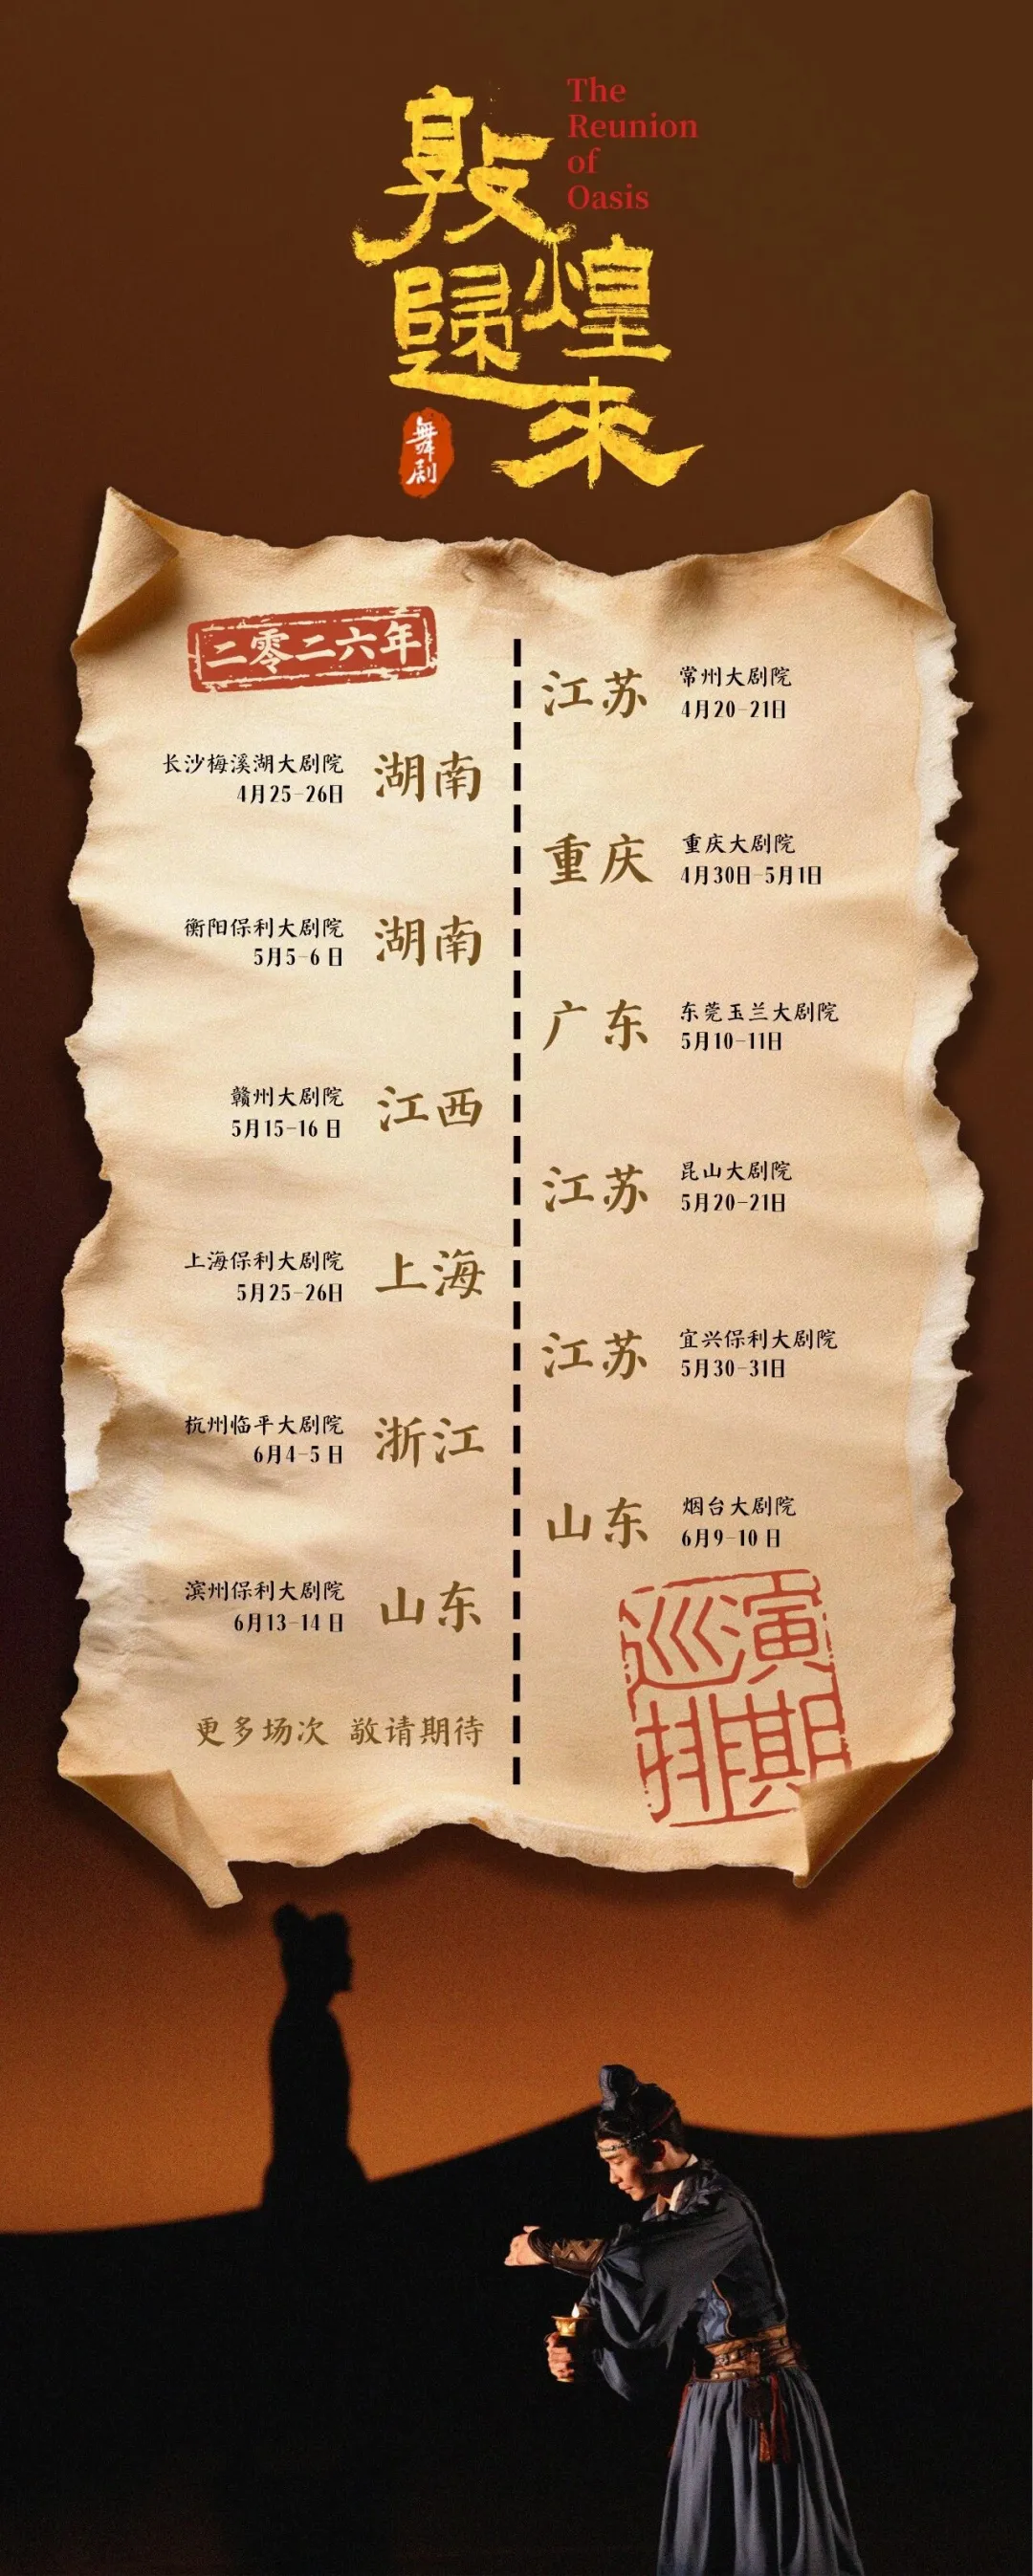 The
Reunion
of
Oasis
敦煌
歸來
舞剧
二零二六年
江苏
常州大剧院
4月20-21日
长沙梅溪湖大剧院
4月25-26日
湖南
重庆
重庆大剧院
4月30日-5月1日
衡阳保利大剧院
5月5-6 日
湖南
广东
东莞玉兰大剧院
5月10-11日
赣州大剧院
5月15-16 日
江西
江苏
昆山大剧院
5月20-21日
上海保利大剧院
5月25-26日
上海
江苏
宜兴保利大剧院
5月30-31日
杭州临平大剧院
6月4-5 日
浙江
山东
烟台大剧院
6月9-10 日
滨州保利大剧院
6月13-14 日
山东
巡演
排期
更多场次 敬请期待